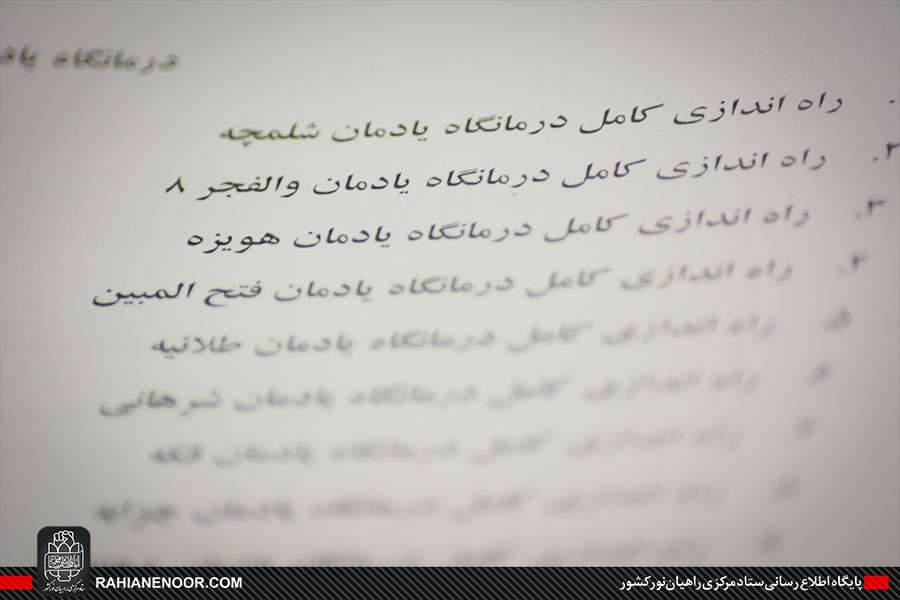 درمانگاه یاد
. راه اندازی کامل درمانگاه یادمان شلمچه
۲. راه اندازی کامل درمانگاه یادمان والفجر ۸
۳. راه اندازی کامل درمانگاه یادمان هویزه
۴. راه اندازی کامل درمانگاه یادمان فتح المبین
۵. راه اندازی کامل درمانگاه یادمان طلائیه
۶. راه اندازی کامل درمانگاه یادمان شرهانی
راه اندازی کامل درمانگاه یادمان فکه
راه اندازی کامل درمانگاه یادمان چزابه
RAHIANENOOR.COM
پایگاه اطلاع رسانی ستاد مرکزی راهیان نور کشور